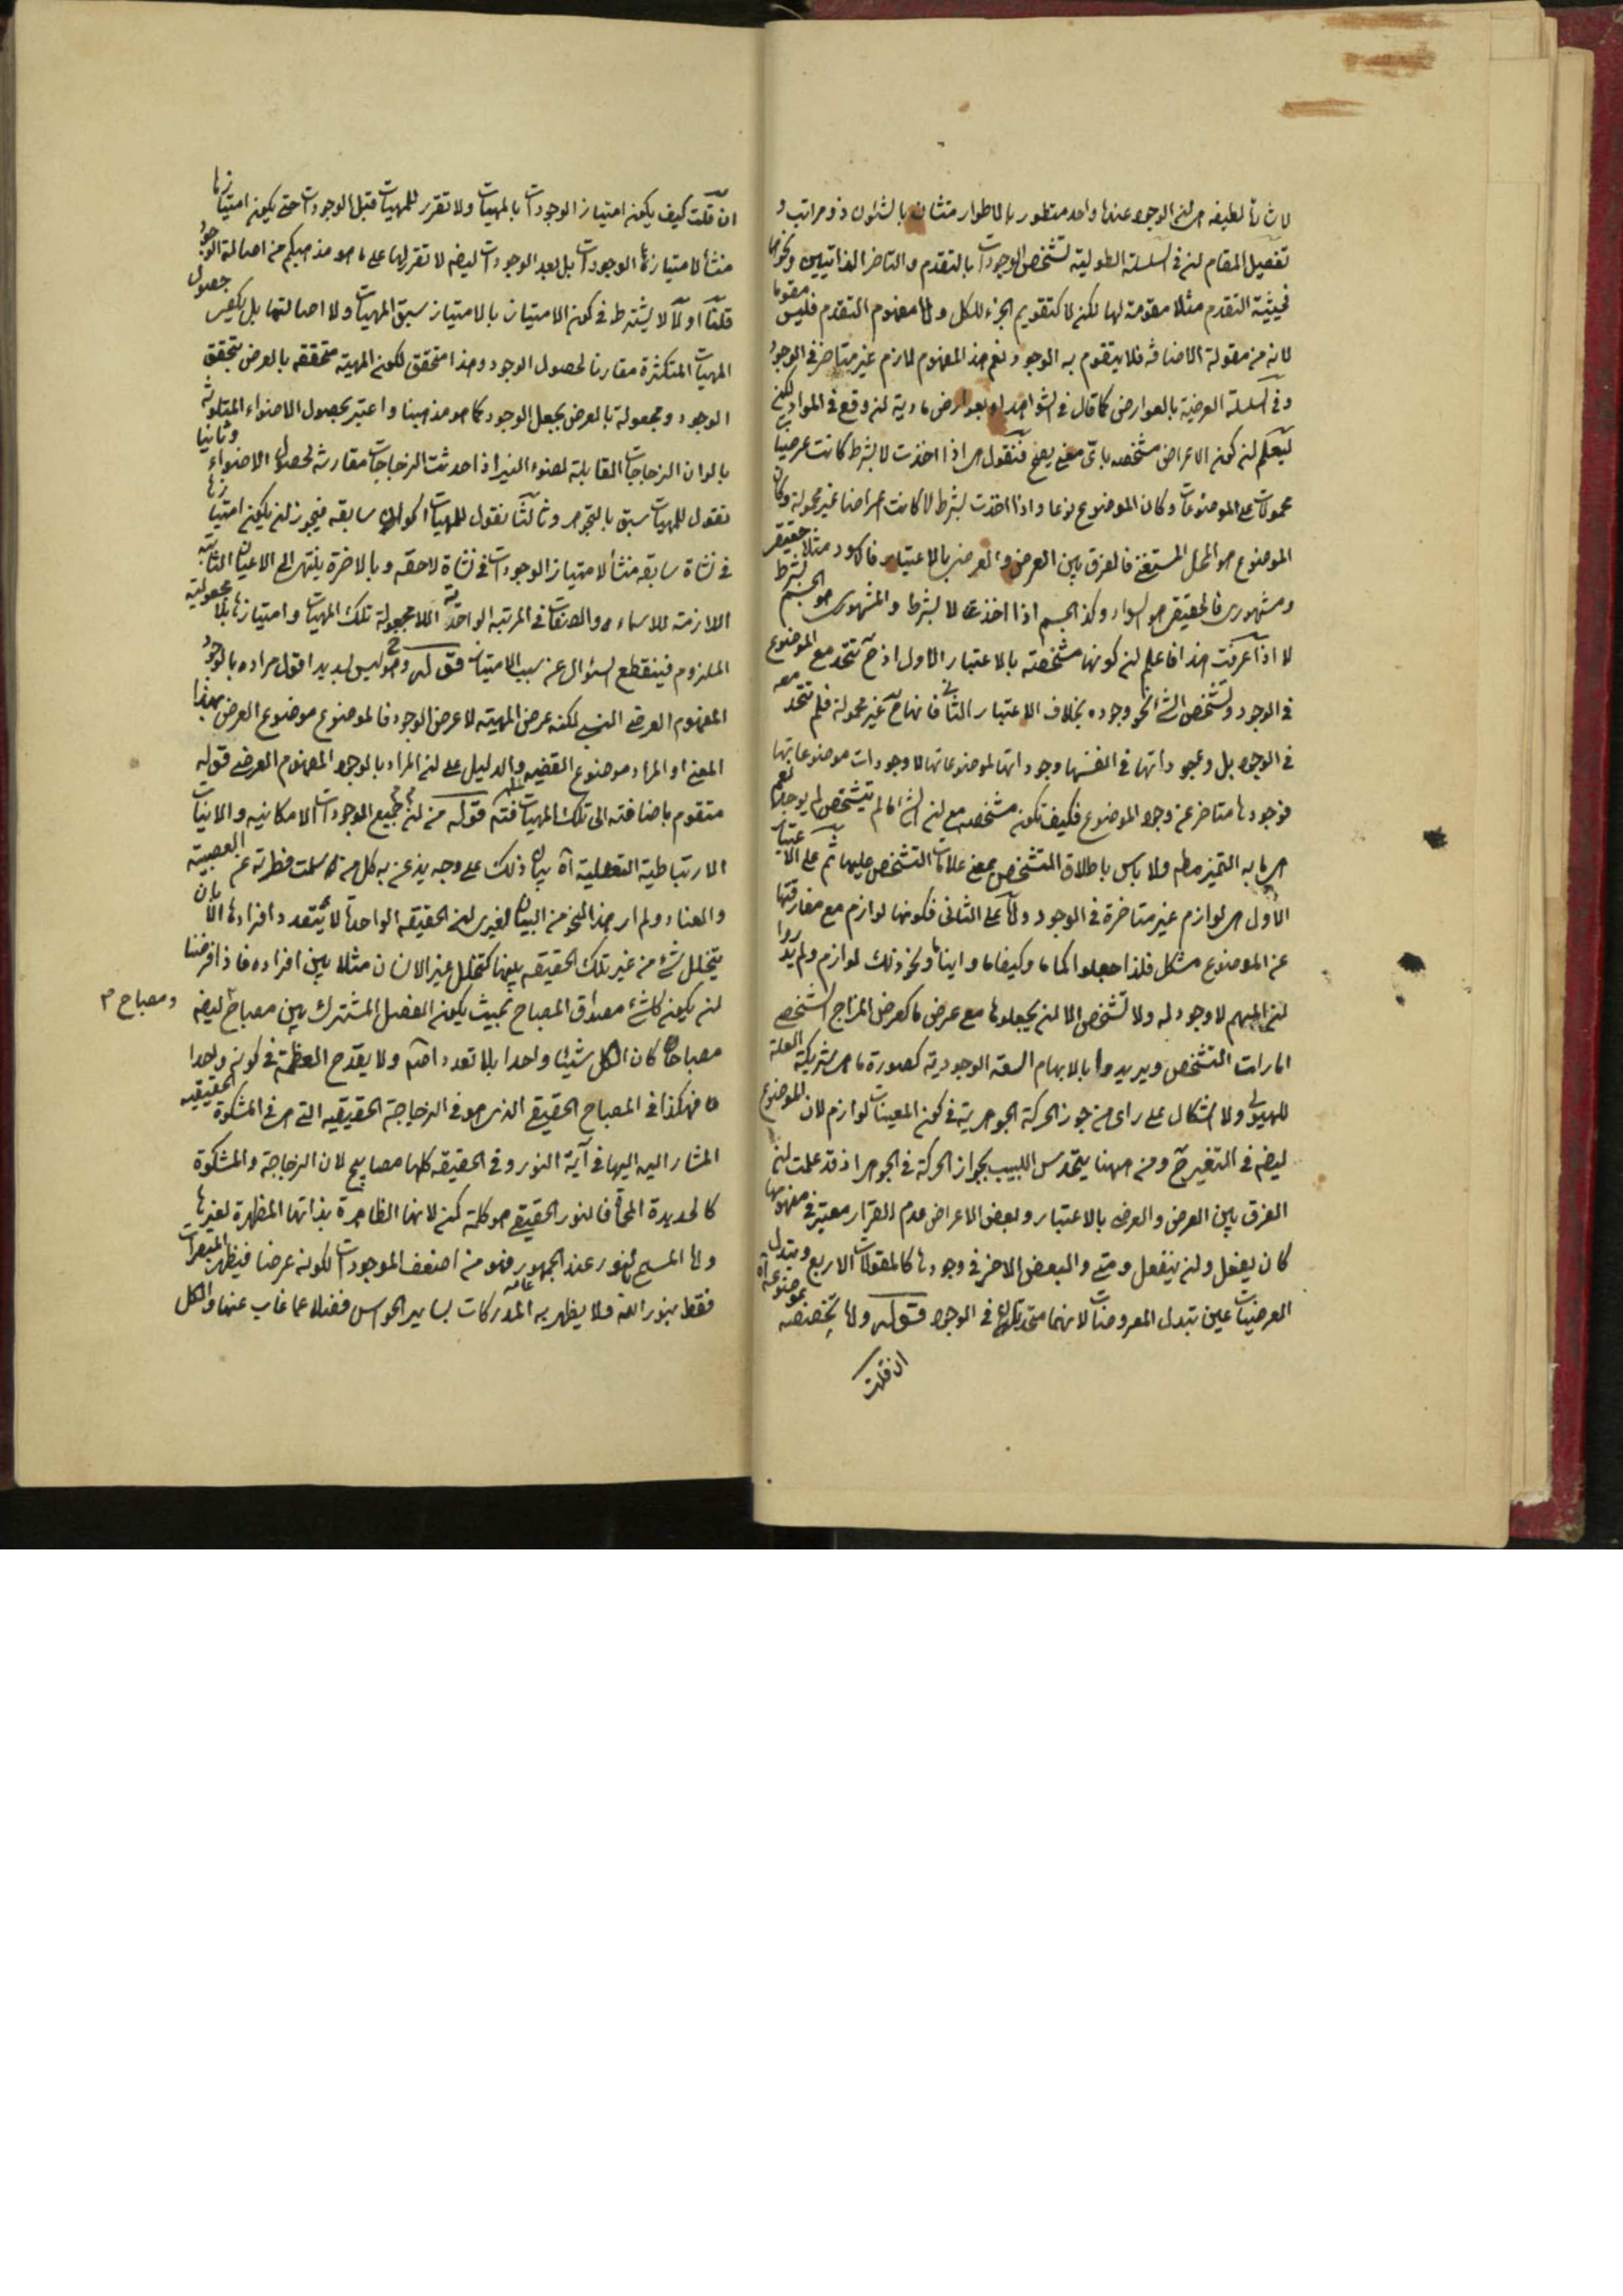 لاشارة لطيفة هى ان الوجود عندنا واحد متطور بالاطوار متشان بالشئون ذو مراتب و
تفصيل المقام ان فى السلسلة الطولية تشخص الوجودات بالتقدم والتاخر الذاتيين ونحوها
فحيثية التقدم مثلا مقومة لها لكن لا كتقويم الجزء للكل واما مفهوم التقدم فليس مقوما
لانه من مقولة الاضافة فلا يتقوم به الوجود نعم هذا المفهوم لازم غير متاخر فى الوجود
وفى السلسلة العرضية بالعوارض كما قال فى الشواهد او بعوارض مادية ان وقع فى المواد لكن
ليعلم ان كون الاعراض مشخصه باى معنى يصح فنقول هى اذا اخذت لا بشرط كانت عرضيا
محمولات على الموضوعات وكان الموضوع نوعا واذا اخذت بشرط لا كانت اعراضا غير محمولة وكان
الموضوع هو المحل المستغنى فالفرق بين العرض والعرضى بالاعتبار فالاسود مثلا حقيقى
ومشهورى فالحقيقى هو السواد وكذا الجسم اذا اخذت لا بشرط والمشهورى هو الجسم بشرط
لا اذا عرفت هذا فاعلم ان كونها مشخصة بالاعتبار الاول اذ ح تتحد مع الموضوع
فى الوجود وتشخص الشئ نحو وجوده بخلاف الاعتبار الثانى فانها ح غير محمولة فلم تتحد معه
فى الوجود بل وجوداتها فى انفسها وجوداتها لموضوعاتها لا وجودات موضوعاتها
فوجودها متاخر عن وجود الموضوع فكيف تكون مشخصه مع ان الشئ ما لم يتشخص لم يوجد نعم
هى ما به التميز مطه ولا باس باطلاق المتشخص بمعنى علامات التشخص عليها ثم على الاعتبار
الاول هى لوازم غير متاخرة فى الوجود واما على الثانى فكونها لوازم مع مفارقتها
عن الموضوع مشكل فلذا جعلوا كما ما وكيفا ما واينا ما ونحو ذلك لوازم ولم يدروا
ان المبهم لا وجود له ولا تشخص الا ان يجعلوها مع عرض ما كعرض المزاج الشخصى
امارات التشخص ويريدوا بالابهام السعة الوجودية كصورة ما هى شريكة العلة
للهيولى ولا اشكال على راى من جوز الحركة الجوهرية فى كون المعينات لوازم لان الموضوع
ايضه فى التغير ح ومن ههنا يتحدس اللبيب بجواز الحركة فى الجوهر اذ قد علمت ان
الفرق بين العرض والعرضى بالاعتبار وبعض الاعراض عدم القرار معتبر فى مفهومها
كان يفعل وان ينفعل ومتى والبعض الاخر فى وجودها كالمقولات الاربع وتبدل
العرضيات عين تبدل المعروضات لانهما متحدتان فى الوجود قوله واما تخصصه بموضوعه آه
ان قلت
ان قلت كيف يكون امتياز الوجودات بالمهيات ولا تقرر للمهيات قبل الوجودات حتى يكون امتيازها
منشأ لامتياز الوجودات بل بعد الوجودات ايضه لا تقرر لها على ما هو مذهبكم من اصالة الوجود
قلنا اولا لا يشترط فى كون الامتياز بالامتياز سبق المهيات ولا اصالتها بل يكفى حصول
المهيات المتكثرة مقارنا لحصول الوجود وهذا متحقق لكون المهية متحققه بالعرض بتحقق
الوجود ومجعولة بالعرض بجعل الوجود كما هو مذهبنا واعتبر بحصول الاضواء المتلونة
بالوان الزجاجات المقابلة لضوء النير اذا حدثت الزجاجات مقارنة لحصول الاضواء وثانيا
نقول للمهيات سبق بالتجوهر وثالثا نقول للمهيات اكوان سابقه فيجوز ان يكون امتيازها
فى نشاة سابقه منشأ لامتياز الوجودات فى نشاة لاحقه وبالاخرة ينتهى الى الاعيان الثابتة
اللازمة للاسماء والصفات فى المرتبة الواحدية اللامجعولة تلك المهيات وامتيازها بلا مجعولية
الملزوم فينقطع السئوال عن سبب الامتياز قوله وهو ليس بسديد اقول مراده بالوجود
المفهوم العرضى النسبى لكنه عرض المهية لا عرض الوجود فالموضوع موضوع العرض بهذا
المعنى او المراد موضوع القضيه والدليل على ان المراد بالوجود المفهوم العرضى قوله
متقوم باضافته الى تلك المهيات فتدبر قوله من ان جميع الموجودات الامكانيه والانيات
الارتباطية التعلقية آه بيان ذلك على وجه يذعن به كل من سلمت فطرته عن العصبية
والعناد ولم ار هذا النحو من البيان لغيرى ان الحقيقه الواحدة لا يتعدد افرادها الا بان
يتخلل شئ من غير تلك الحقيقه بينها كتخلل غير الانسان مثلا بين افراده فاذا فرضنا
ان يكون كل شئ مصداق المصباح بحيث يكون الفصل المشترك بين مصباح ومصباح ايضه
مصباحا كان الكل شيئا واحدا بلا تعدد اصلا ولا يقدح العظمة فى كونه واحدا
فهكذا فى المصباح الحقيقى الذى هو فى الزجاجة الحقيقيه التى هى فى المشكوة الحقيقيه
المشار اليه اليها فى آية النور وفى الحقيقه كلها مصابيح لان الزجاجة والمشكوة
كالحديدة المحماة فالنور الحقيقى هو كله لانها الظاهرة بذاتها المظهرة لغيرها
واما المسمى بالنور عند الجمهور فهو من اضعف الموجودات لكونه عرضا فيظهر المبصرات
فقط بنور الله ولا يظهر به عامة المدركات بساير الحواس فضلا عما غاب عنها والكل